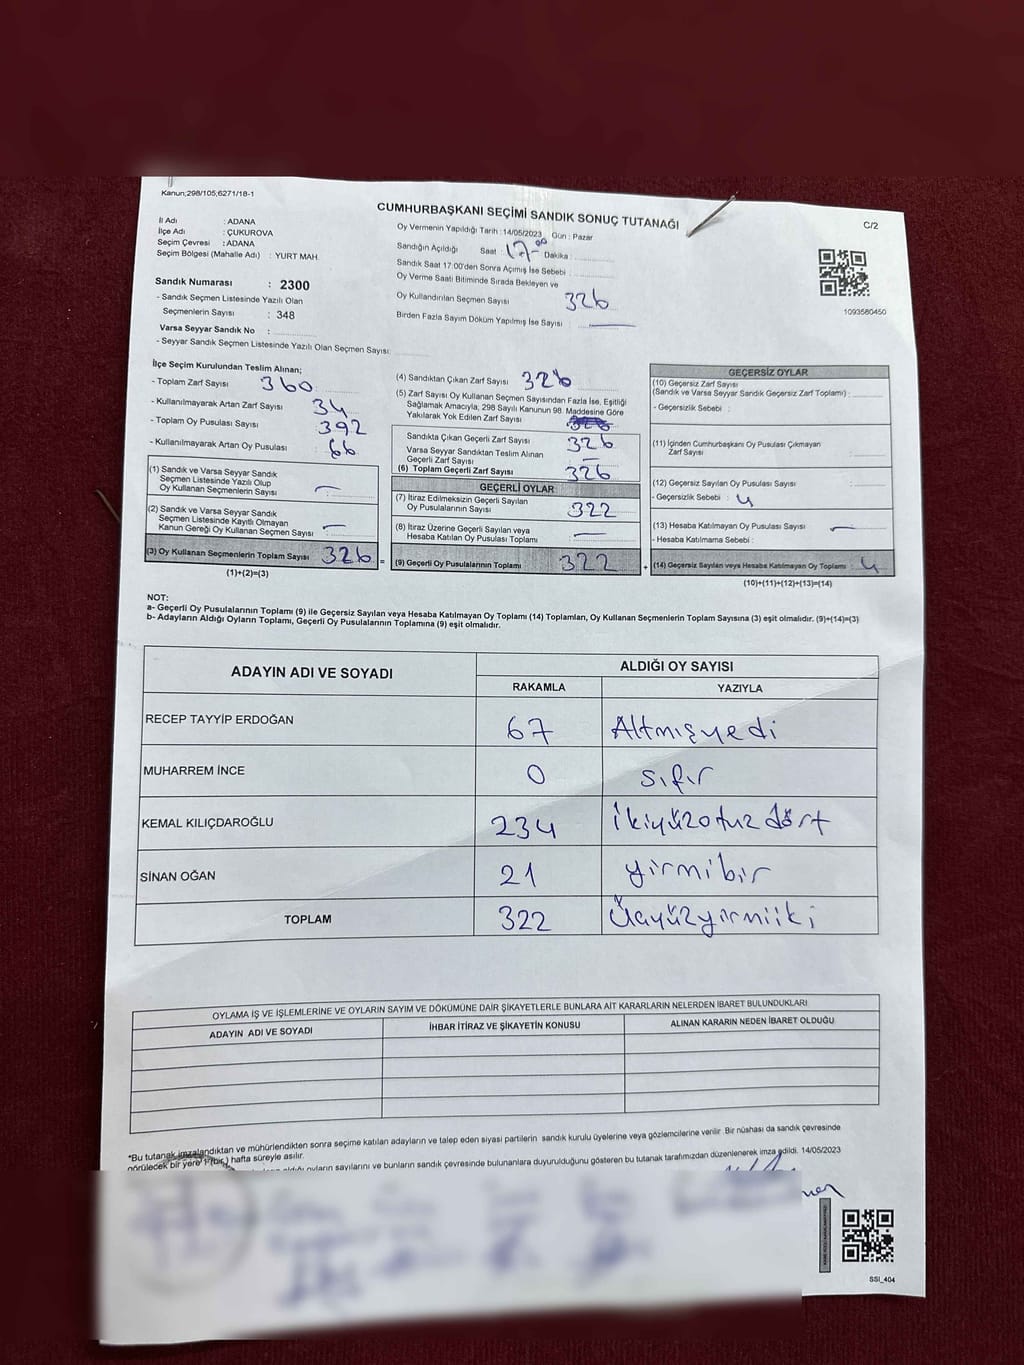 Kanun;298/105;6271/18-1
CUMHURBAŞKANI SEÇİMİ SANDIK SONUÇ TUTANAĞI
C/2
İl Adı : ADANA
İlçe Adı : ÇUKUROVA
Seçim Çevresi : ADANA
Seçim Bölgesi (Mahalle Adı) : YURT MAH.
Sandık Numarası : 2300
- Sandık Seçmen Listesinde Yazılı Olan
Seçmenlerin Sayısı : 348
Varsa Seyyar Sandık No :
- Seyyar Sandık Seçmen Listesinde Yazılı Olan Seçmen Sayısı:
Oy Vermenin Yapıldığı Tarih : 14/05/2023 Gün : Pazar
Sandığın Açıldığı Saat : 17-00 Dakika :
Sandık Saat 17:00'den Sonra Açımış İse Sebebi :
Oy Verme Saati Bitiminde Sırada Bekleyen ve
Oy Kullandırılan Seçmen Sayısı 326
Birden Fazla Sayım Döküm Yapılmış İse Sayısı :
1093580450
İlçe Seçim Kurulundan Teslim Alınan;
- Toplam Zarf Sayısı 360
- Kullanılmayarak Artan Zarf Sayısı 34
- Toplam Oy Pusulası Sayısı 392
- Kullanılmayarak Artan Oy Pusulası : 66
(1) Sandık ve Varsa Seyyar Sandık
Seçmen Listesinde Yazılı Olup
Oy Kullanan Seçmenlerin Sayısı : —
(2) Sandık ve Varsa Seyyar Sandık
Seçmen Listesinde Kayıtlı Olmayan
Kanun Gereği Oy Kullanan Seçmen Sayısı : —
(3) Oy Kullanan Seçmenlerin Toplam Sayısı 326
(1)+(2)=(3)
(4) Sandıktan Çıkan Zarf Sayısı 326
(5) Zarf Sayısı Oy Kullanan Seçmen Sayısından Fazla İse, Eşitliği
Sağlamak Amacıyla, 298 Sayılı Kanunun 98. Maddesine Göre
Yakılarak Yok Edilen Zarf Sayısı
Sandıkta Çıkan Geçerli Zarf Sayısı 326
Varsa Seyyar Sandıktan Teslim Alınan
Geçerli Zarf Sayısı —
(6) Toplam Geçerli Zarf Sayısı 326
=
GEÇERLİ OYLAR
(7) İtiraz Edilmeksizin Geçerli Sayılan
Oy Pusulalarının Sayısı 322
(8) İtiraz Üzerine Geçerli Sayılan veya
Hesaba Katılan Oy Pusulası Toplamı —
(9) Geçerli Oy Pusulalarının Toplamı 322
+
GEÇERSİZ OYLAR
(10) Geçersiz Zarf Sayısı
(Sandık ve Varsa Seyyar Sandık Geçersiz Zarf Toplamı) :
- Geçersizlik Sebebi :
(11) İçinden Cumhurbaşkanı Oy Pusulası Çıkmayan
Zarf Sayısı :
(12) Geçersiz Sayılan Oy Pusulası Sayısı :
- Geçersizlik Sebebi : 4
(13) Hesaba Katılmayan Oy Pusulası Sayısı —
- Hesaba Katılmama Sebebi :
(14) Geçersiz Sayılan veya Hesaba Katılmayan Oy Toplamı 4
(10)+(11)+(12)+(13)=(14)
NOT:
a- Geçerli Oy Pusulalarının Toplamı (9) ile Geçersiz Sayılan veya Hesaba Katılmayan Oy Toplamı (14) Toplamları, Oy Kullanan Seçmenlerin Toplam Sayısına (3) eşit olmalıdır. (9)+(14)=(3)
b- Adayların Aldığı Oyların Toplamı, Geçerli Oy Pusulalarının Toplamına (9) eşit olmalıdır.
ADAYIN ADI VE SOYADI
ALDIĞI OY SAYISI
RAKAMLA YAZIYLA
RECEP TAYYİP ERDOĞAN 67 Altmışyedi
MUHARREM İNCE 0 sıfır
KEMAL KILIÇDAROĞLU 234 ikiyüzotuzdört
SİNAN OĞAN 21 yirmibir
TOPLAM 322 Üçyüzyirmiiki
OYLAMA İŞ VE İŞLEMLERİNE VE OYLARIN SAYIM VE DÖKÜMÜNE DAİR ŞİKAYETLERLE BUNLARA AİT KARARLARIN NELERDEN İBARET BULUNDUKLARI
ADAYIN ADI VE SOYADI İHBAR İTİRAZ VE ŞİKAYETİN KONUSU ALINAN KARARIN NEDEN İBARET OLDUĞU
*Bu tutanak imzalandıktan ve mühürlendikten sonra seçime katılan adayların ve talep eden siyasi partilerin sandık kurulu üyelerine veya gözlemcilerine verilir. Bir nüshası da sandık çevresinde
görülecek bir yere 1 (bir) hafta süreyle asılır.
aldığı oyların sayılarını ve bunların sandık çevresinde bulunanlara duyurulduğunu gösteren bu tutanak tarafımızdan düzenlenerek imza edildi. 14/05/2023
SSI_404